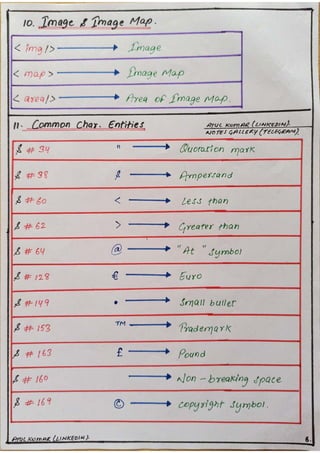 10. Image & Image Map.
<img/> → Image
<map/> → Image Map
<area/> → Area of Image Map.
11. Common Char. Entities
ATUL KUMAR (LINKEDIN)
NOTES GALLERY (TELEGRAM)
& #34 " → Quotation mark
& #38 & → Ampersand
& #60 < → Less than
& #62 > → Greater than
& #64 @ → "At" symbol
& #128 € → Euro
& #149 • → Small bullet
& #153 ™ → Trademark
& #163 £ → Pound
& #160 → Non-breaking space
& #169 © → copyright symbol.
ATUL KUMAR (LINKEDIN) 6.